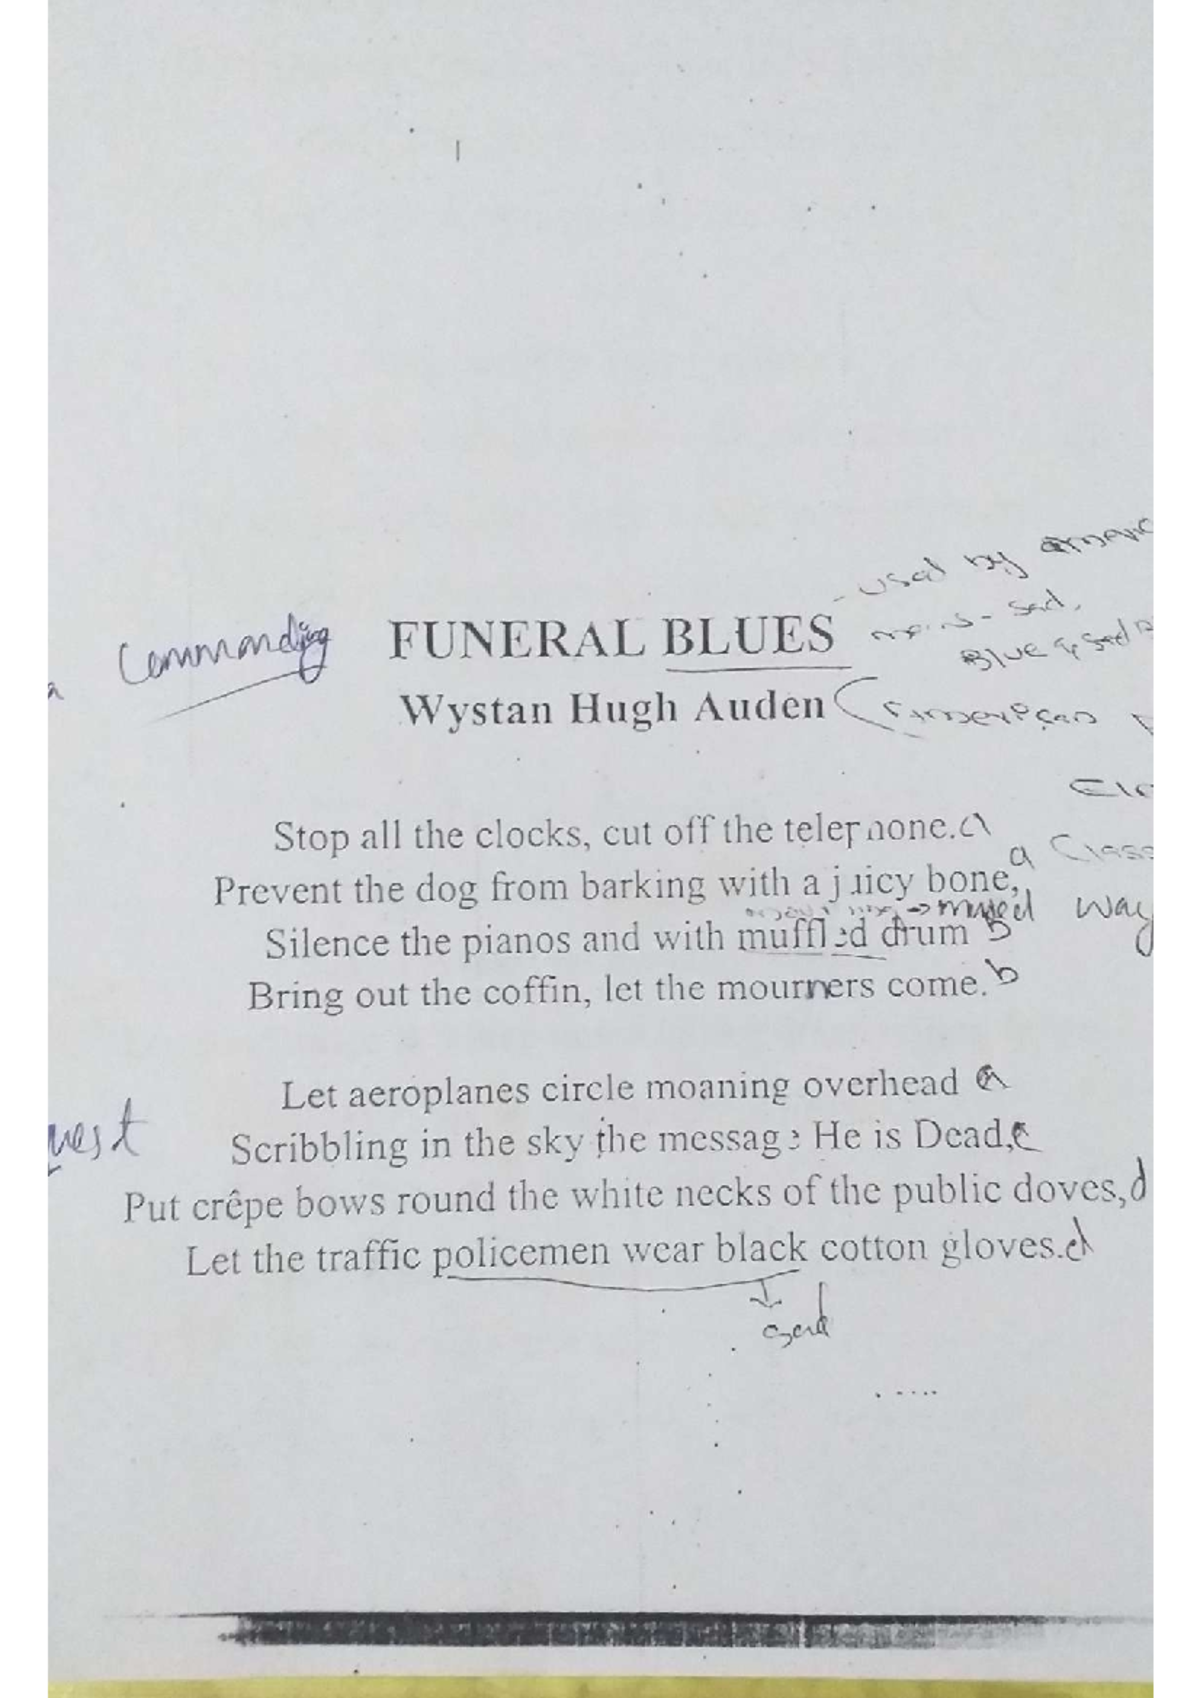 - used by
means - sad.
Blue & sad
Commanding
FUNERAL BLUES
Wystan Hugh Auden
American
Stop all the clocks, cut off the telephone. a
a Class
Prevent the dog from barking with a juicy bone,
→ muted way
Silence the pianos and with muffled drum b
Bring out the coffin, let the mourners come. b
Let aeroplanes circle moaning overhead c
Scribbling in the sky the message He is Dead, c
Put crêpe bows round the white necks of the public doves, d
Let the traffic policemen wear black cotton gloves. d
sad